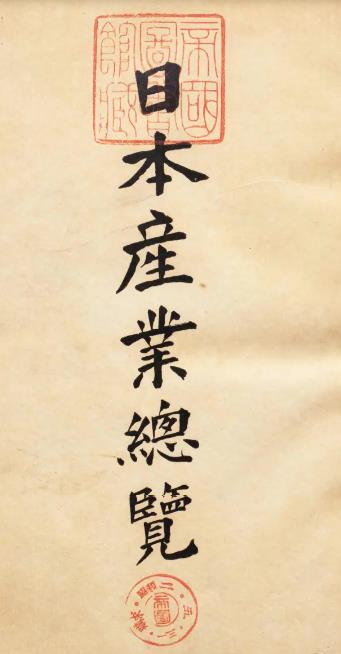 日本産業總覽
帝國
圖書
館藏